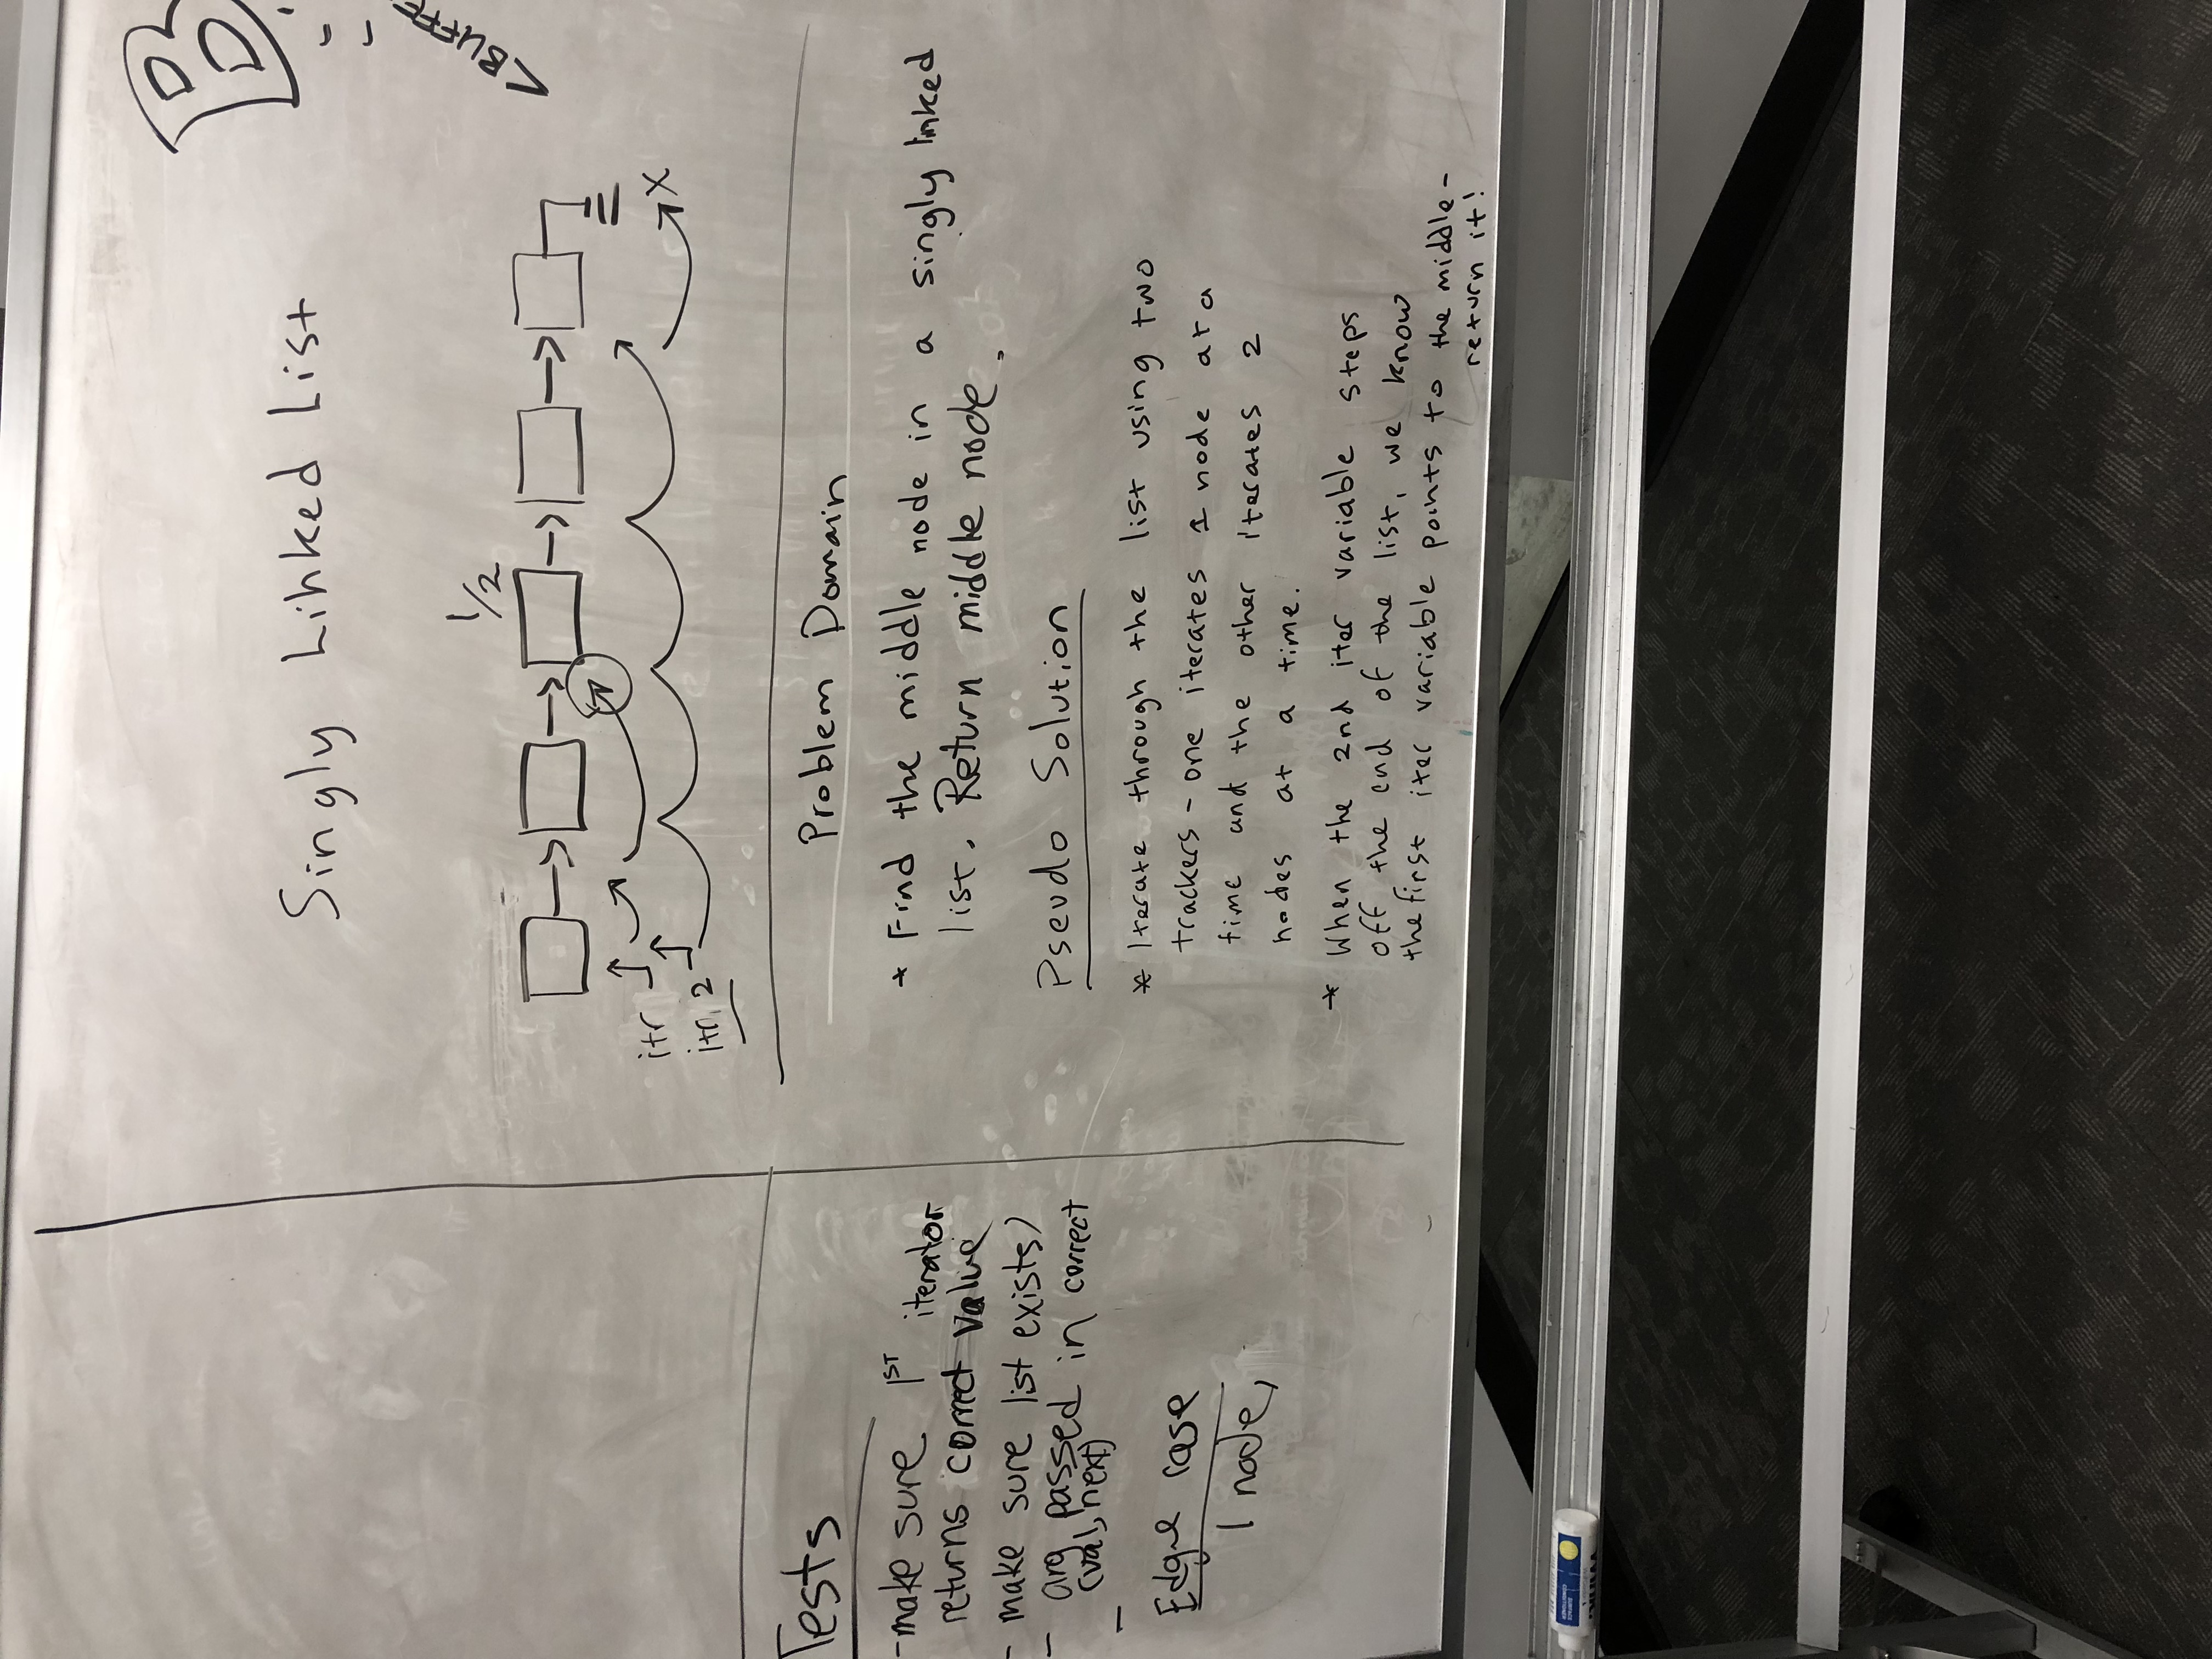 Singly Linked List
B
<BUFFE
1/2
itr
itr 2
x
Tests
- make sure 1ST iterator
returns correct value
- make sure list exists)
- arg passed in correct
(val, next)
-
Edge case
1 node,
Problem Domain
* Find the middle node in a singly linked
list. Return middle node.
Pseudo Solution
* Iterate through the list using two
trackers - one iterates 1 node at a
time and the other iterates 2
nodes at a time.
* When the 2nd iter variable steps
off the end of the list, we know
the first iter variable points to the middle -
return it!
SURFACE
CONDITIONER